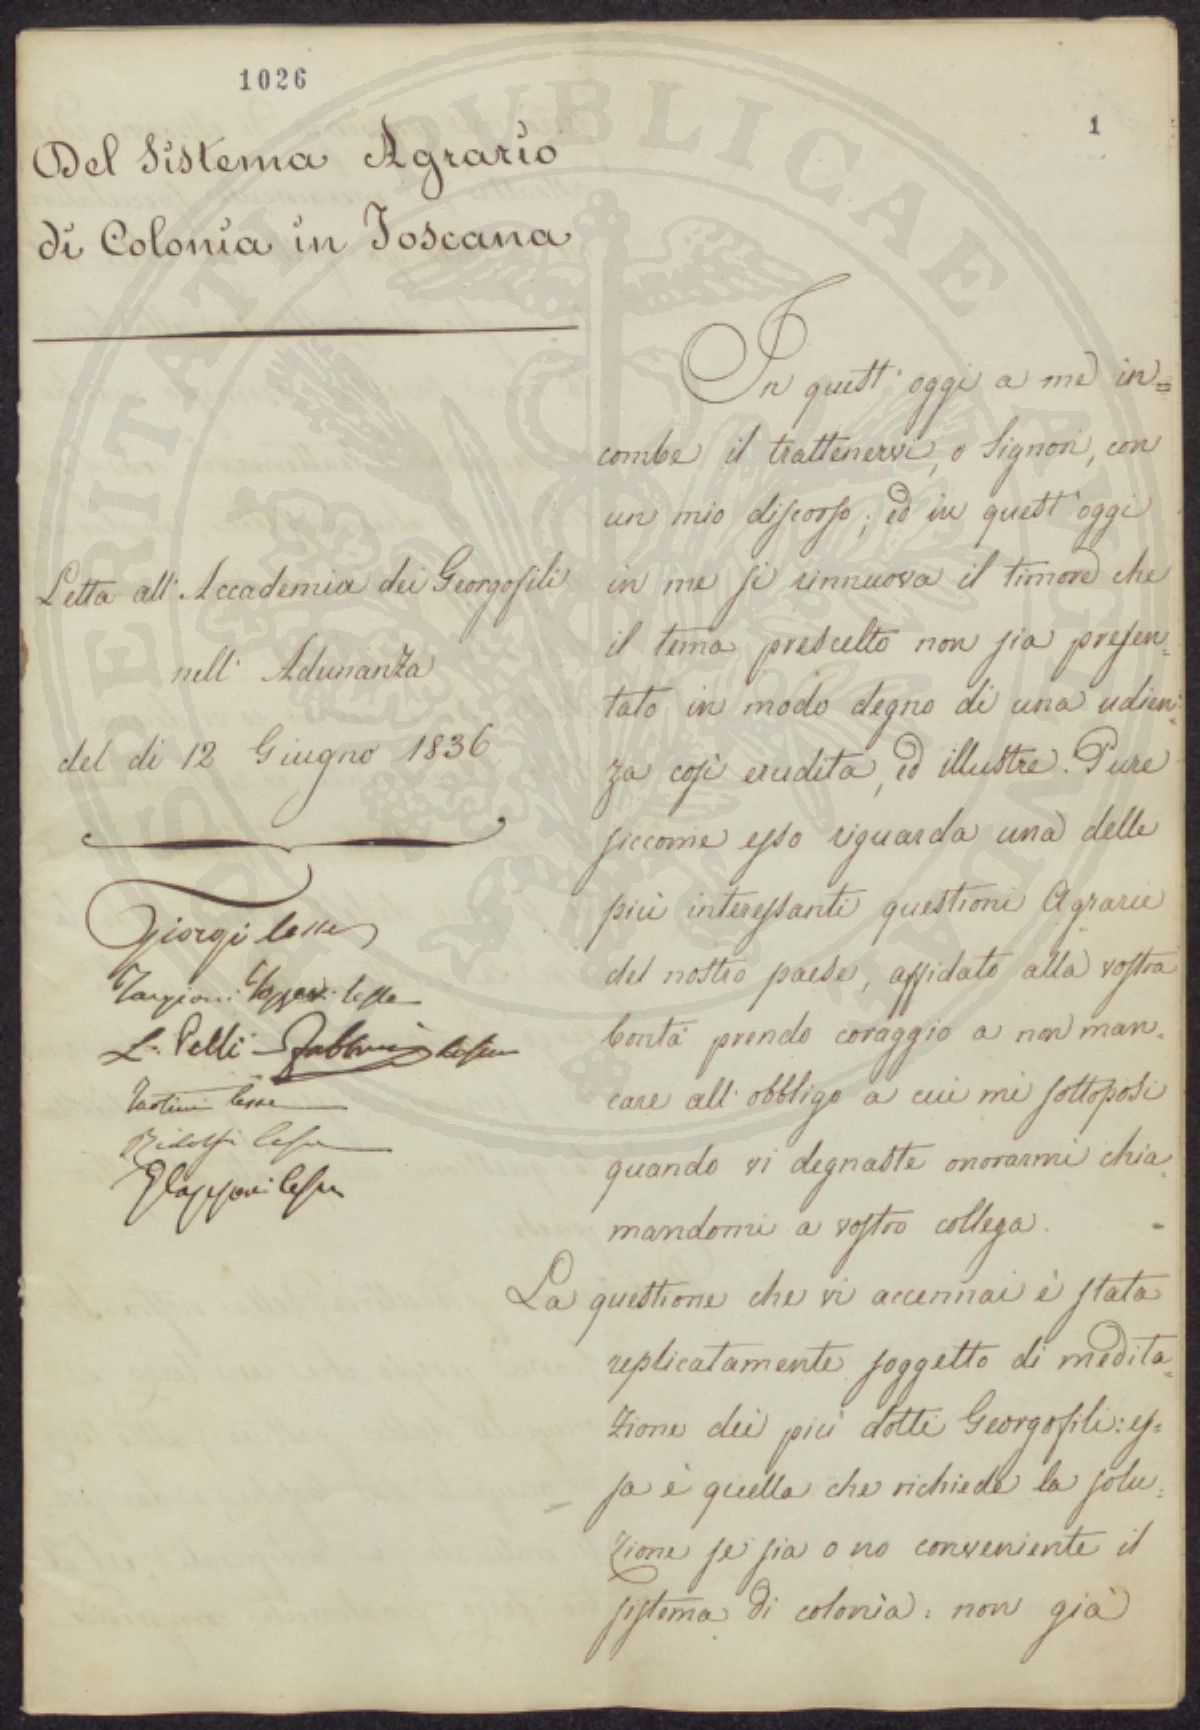 1026
1
Del Sistema Agrario
di Colonia in Toscana
Letta all' Accademia dei Georgofili
nell' Adunanza
del di 12 Giugno 1836
Giorgi lesse
Targioni Tozzetti lesse
L. Pelli Fabbroni lesse
Tartini lesse
Ridolfi lesse
G Capponi lesse
In quest' oggi a me in=
combe il trattenervi, o Signori, con
un mio discorso; ed in quest' oggi
in me si rinnuova il timore che
il tema prescelto non sia presen=
tato in modo degno di una udien=
za così erudita, ed illustre. Pure
siccome esso riguarda una delle
più interessanti questioni Agrarie
del nostro paese, affidato alla vostra
bontà prendo coraggio a non man=
care all' obbligo a cui mi sottoposi
quando vi degnaste onorarmi chia=
mandomi a vostro collega.
La questione che vi accennai è stata
replicatamente soggetto di medita=
zione dei più dotti Georgofili: es=
sa è quella che richiede la solu=
zione se sia o no conveniente il
sistema di colonìa: non già
PROSPERITATI PUBLICAE AUGENDAE